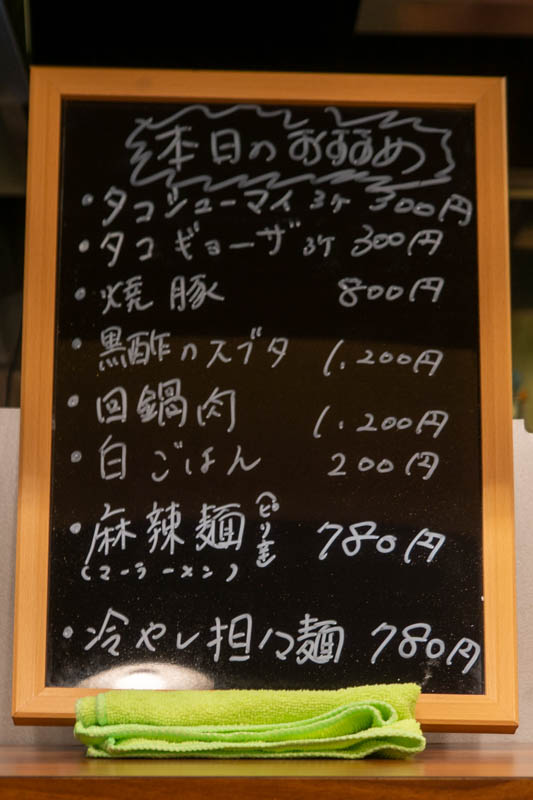 本日のおすすめ
・タコシューマイ 3ケ 300円
・タコギョーザ 3ケ 300円
・焼豚 800円
・黒酢のスブタ 1.200円
・回鍋肉 1.200円
・白ごはん 200円
・麻辣麺(ピリ辛) 780円
(マーラーメン)
・冷やし担々麺 780円